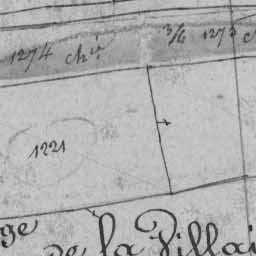 1274 ché 3/6 1273
1221
ge
de la Villai